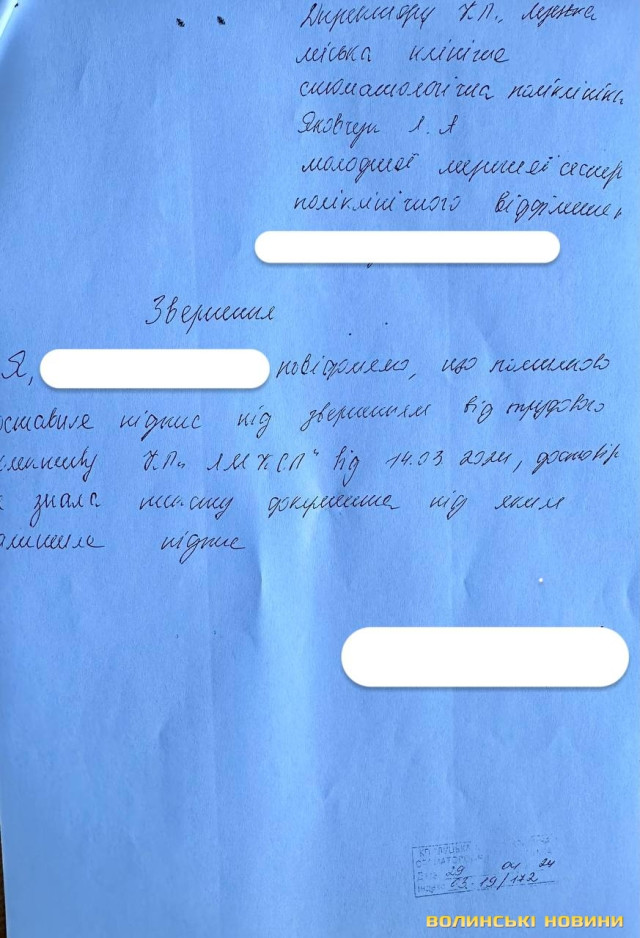 Директору К.П., Луцька
міська клінічна
стоматологічна поліклініка
Яковчук Л. А
молодшої медичної сестри
поліклінічного відділення
Звернення
Я, повідомляю, що помилково
оставила підпис під зверненням від трудового
К.П. „ЛМКСП" від 14.03 2024, достовір
знала документа під яким
залишила підпис
29 04 24
03-19/172
ВОЛИНСЬКІ НОВИНИ